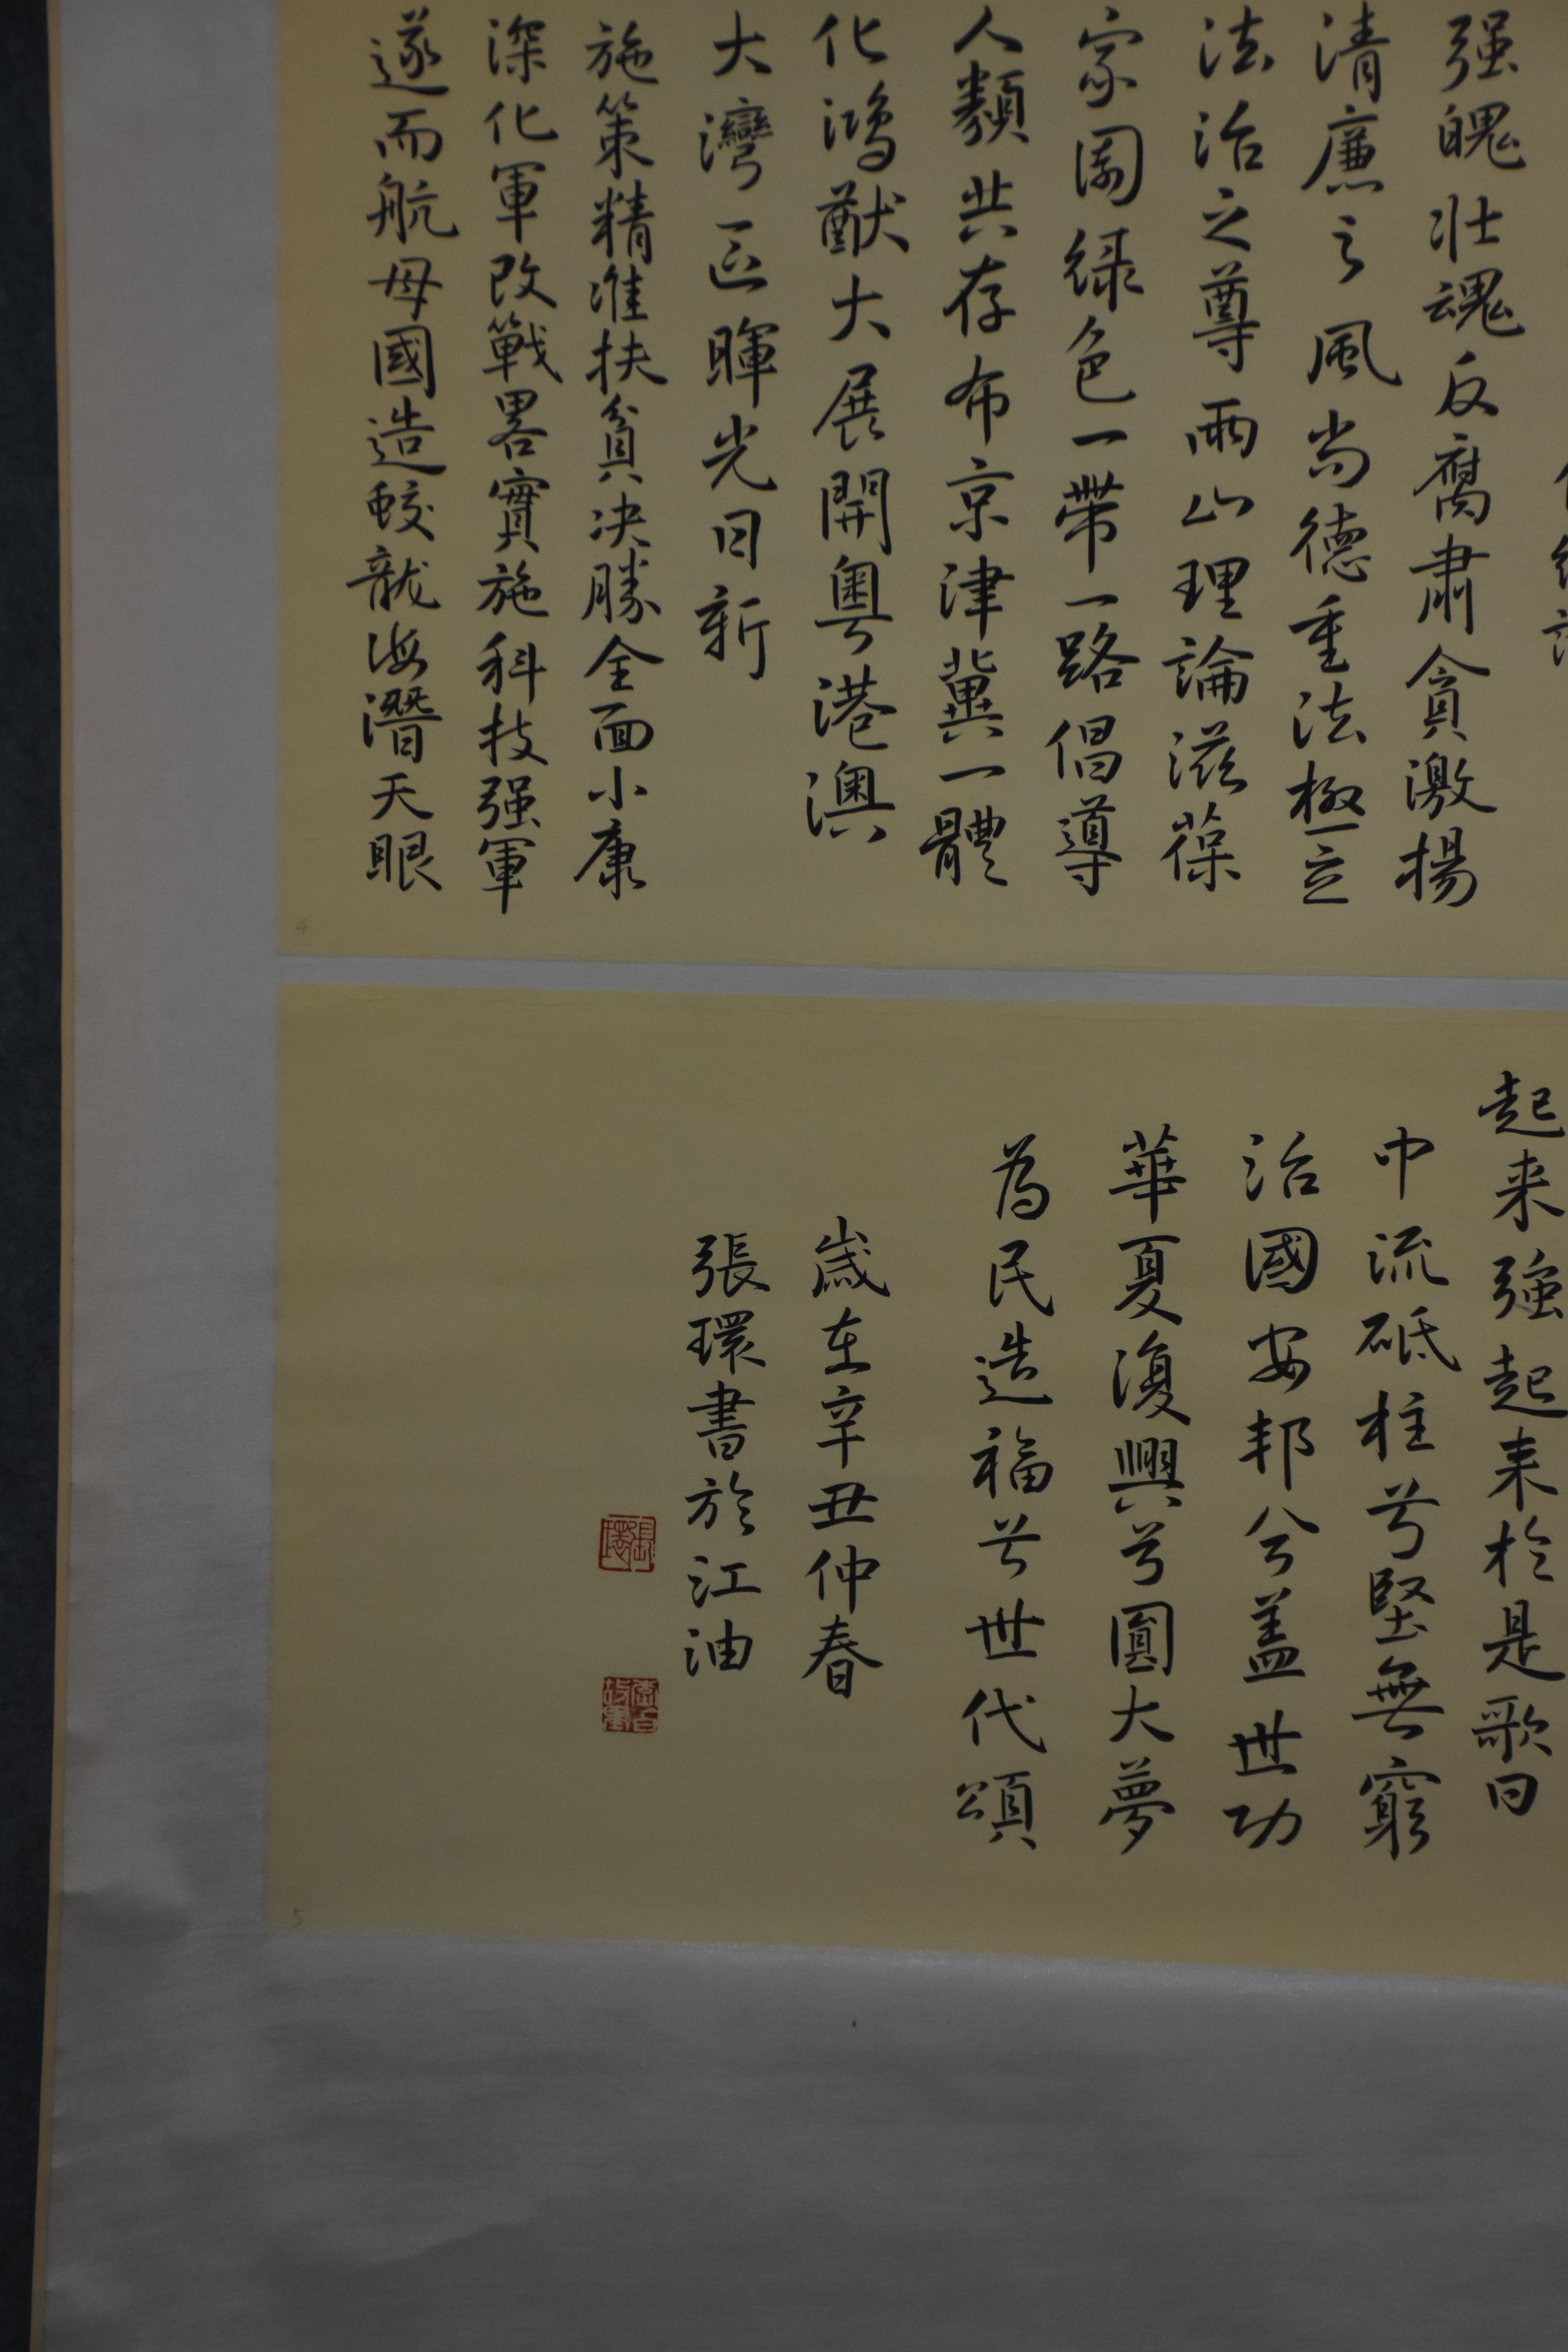 强魄壮魂反腐肅貪激揚
清廉之風尚德重法極立
法治之尊兩山理論滋葆
家園绿色一带一路倡導
人類共存布京津冀一體
化鴻猷大展開粤港澳
大灣区暉光日新
施策精准扶貧决勝全面小康
深化軍改戰畧實施科技强軍
遂而航母國造蛟龍海潛天眼
起来強起来於是歌曰
中流砥柱兮堅無窮
治國安邦兮蓋世功
華夏復興兮圓大夢
為民造福兮世代頌
歲在辛丑仲春
張環書於江油
張環